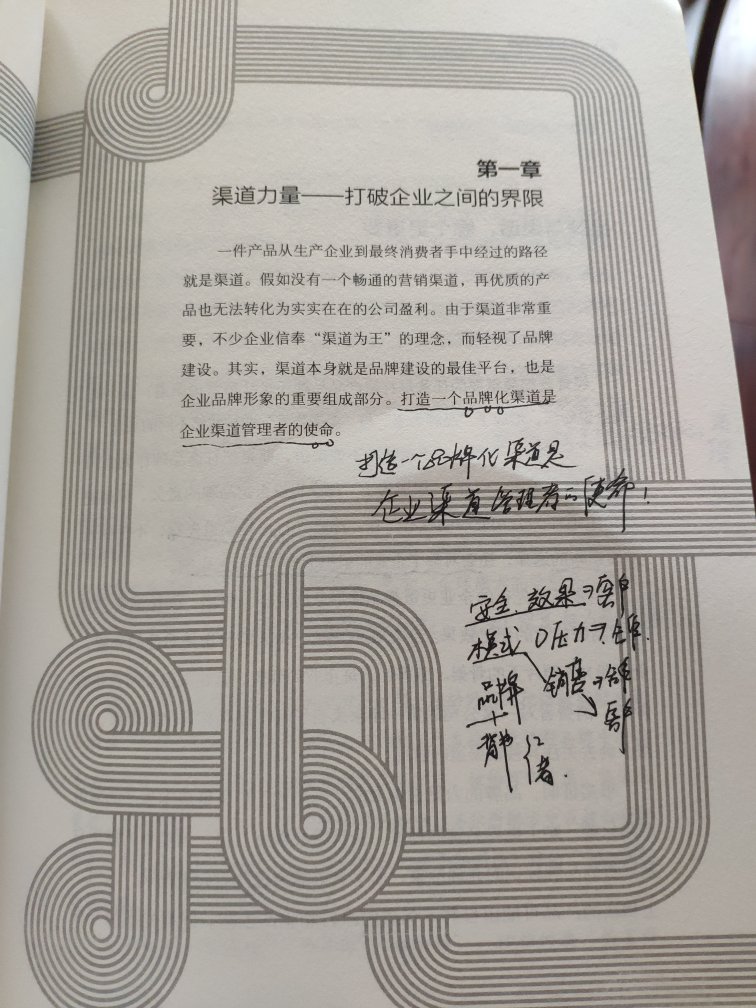 第一章
渠道力量——打破企业之间的界限
一件产品从生产企业到最终消费者手中经过的路径
就是渠道。假如没有一个畅通的营销渠道，再优质的产
品也无法转化为实实在在的公司盈利。由于渠道非常重
要，不少企业信奉“渠道为王”的理念，而轻视了品牌
建设。其实，渠道本身就是品牌建设的最佳平台，也是
企业品牌形象的重要组成部分。打造一个品牌化渠道是
企业渠道管理者的使命。
打造一个品牌化渠道是
企业渠道管理者的使命！
安全、效果→
模式 0压力→
品牌 销售→
+
背书